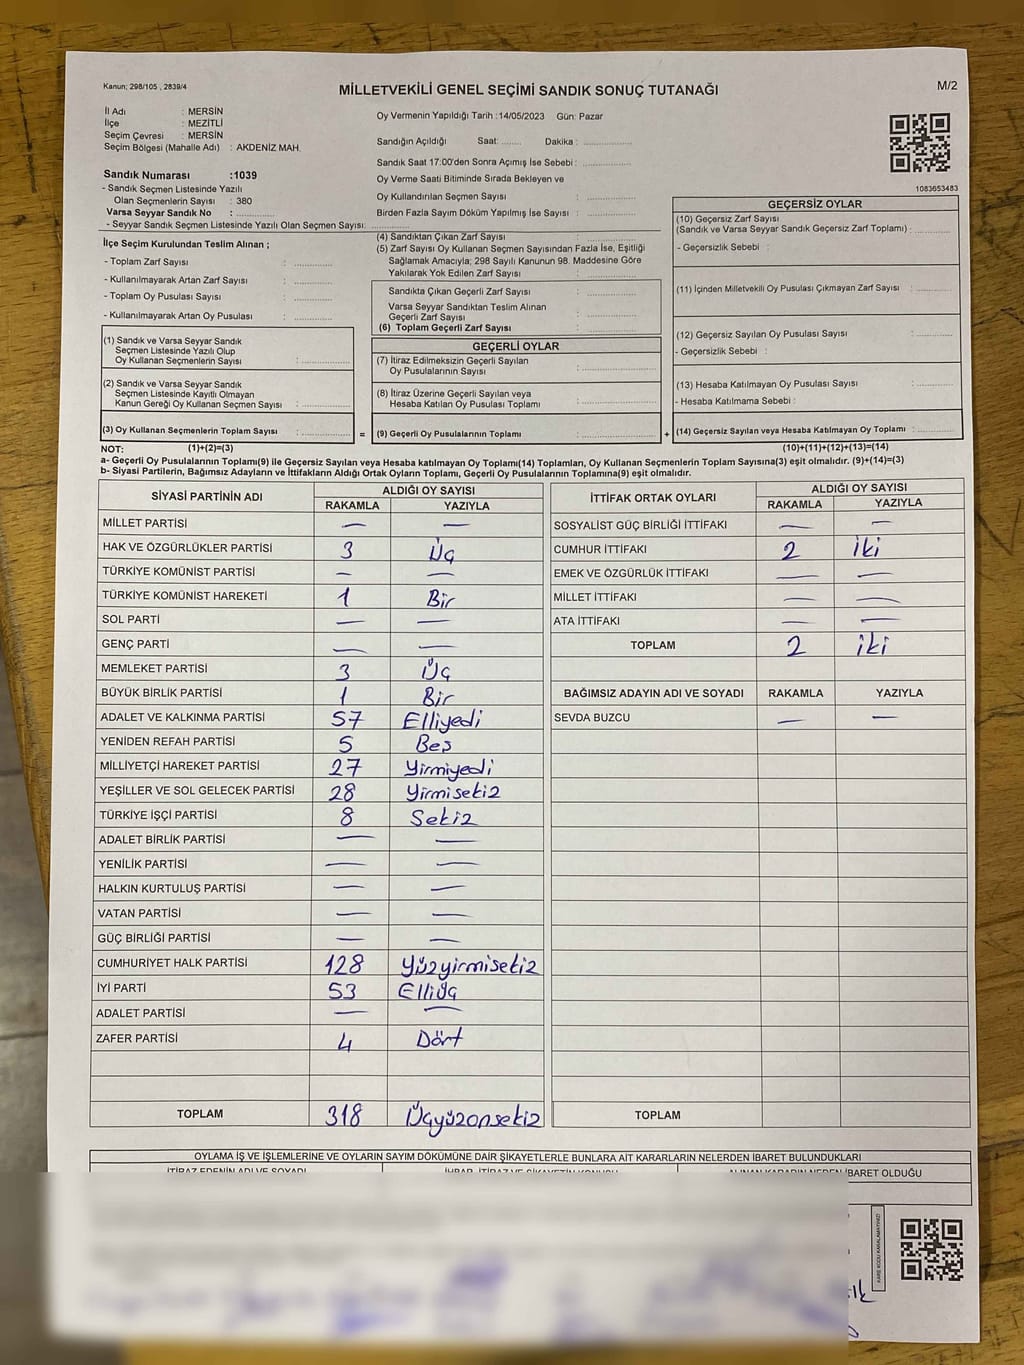 Kanun; 298/105 , 2839/4
MİLLETVEKİLİ GENEL SEÇİMİ SANDIK SONUÇ TUTANAĞI
M/2
İl Adı : MERSİN
İlçe : MEZİTLİ
Seçim Çevresi : MERSİN
Seçim Bölgesi (Mahalle Adı) : AKDENİZ MAH.
Sandık Numarası :1039
- Sandık Seçmen Listesinde Yazılı
Olan Seçmenlerin Sayısı : 380
Varsa Seyyar Sandık No : ............
- Seyyar Sandık Seçmen Listesinde Yazılı Olan Seçmen Sayısı: ............
Oy Vermenin Yapıldığı Tarih :14/05/2023 Gün: Pazar
Sandığın Açıldığı Saat: ....... Dakika : ............
Sandık Saat 17:00'den Sonra Açımış İse Sebebi : ............
Oy Verme Saati Bitiminde Sırada Bekleyen ve
Oy Kullandırılan Seçmen Sayısı : ............
Birden Fazla Sayım Döküm Yapılmış İse Sayısı : ............
1083653483
İlçe Seçim Kurulundan Teslim Alınan ;
- Toplam Zarf Sayısı : ............
- Kullanılmayarak Artan Zarf Sayısı : ............
- Toplam Oy Pusulası Sayısı : ............
- Kullanılmayarak Artan Oy Pusulası : ............
(1) Sandık ve Varsa Seyyar Sandık
Seçmen Listesinde Yazılı Olup
Oy Kullanan Seçmenlerin Sayısı : ............
(2) Sandık ve Varsa Seyyar Sandık
Seçmen Listesinde Kayıtlı Olmayan
Kanun Gereği Oy Kullanan Seçmen Sayısı : ............
(3) Oy Kullanan Seçmenlerin Toplam Sayısı : ............
(4) Sandıktan Çıkan Zarf Sayısı : ............
(5) Zarf Sayısı Oy Kullanan Seçmen Sayısından Fazla İse, Eşitliği
Sağlamak Amacıyla; 298 Sayılı Kanunun 98. Maddesine Göre
Yakılarak Yok Edilen Zarf Sayısı : ............
Sandıkta Çıkan Geçerli Zarf Sayısı : ............
Varsa Seyyar Sandıktan Teslim Alınan
Geçerli Zarf Sayısı : ............
(6) Toplam Geçerli Zarf Sayısı : ............
GEÇERLİ OYLAR
(7) İtiraz Edilmeksizin Geçerli Sayılan
Oy Pusulalarının Sayısı : ............
(8) İtiraz Üzerine Geçerli Sayılan veya
Hesaba Katılan Oy Pusulası Toplamı : ............
= (9) Geçerli Oy Pusulalarının Toplamı : ............
GEÇERSİZ OYLAR
(10) Geçersiz Zarf Sayısı
(Sandık ve Varsa Seyyar Sandık Geçersiz Zarf Toplamı) : ............
- Geçersizlik Sebebi :
(11) İçinden Milletvekili Oy Pusulası Çıkmayan Zarf Sayısı : ............
(12) Geçersiz Sayılan Oy Pusulası Sayısı : ............
- Geçersizlik Sebebi :
(13) Hesaba Katılmayan Oy Pusulası Sayısı : ............
- Hesaba Katılmama Sebebi :
+ (14) Geçersiz Sayılan veya Hesaba Katılmayan Oy Toplamı : ............
NOT: (1)+(2)=(3) (10)+(11)+(12)+(13)=(14)
a- Geçerli Oy Pusulalarının Toplamı(9) ile Geçersiz Sayılan veya Hesaba katılmayan Oy Toplamı(14) Toplamları, Oy Kullanan Seçmenlerin Toplam Sayısına(3) eşit olmalıdır. (9)+(14)=(3)
b- Siyasi Partilerin, Bağımsız Adayların ve İttifakların Aldığı Ortak Oyların Toplamı, Geçerli Oy Pusulalarının Toplamına(9) eşit olmalıdır.
SİYASİ PARTİNİN ADI ALDIĞI OY SAYISI
RAKAMLA YAZIYLA
MİLLET PARTİSİ — —
HAK VE ÖZGÜRLÜKLER PARTİSİ 3 Üç
TÜRKİYE KOMÜNİST PARTİSİ — —
TÜRKİYE KOMÜNİST HAREKETİ 1 Bir
SOL PARTİ — —
GENÇ PARTİ — —
MEMLEKET PARTİSİ 3 Üç
BÜYÜK BİRLİK PARTİSİ 1 Bir
ADALET VE KALKINMA PARTİSİ 57 Elliyedi
YENİDEN REFAH PARTİSİ 5 Beş
MİLLİYETÇİ HAREKET PARTİSİ 27 Yirmiyedi
YEŞİLLER VE SOL GELECEK PARTİSİ 28 Yirmisekiz
TÜRKİYE İŞÇİ PARTİSİ 8 Sekiz
ADALET BİRLİK PARTİSİ — —
YENİLİK PARTİSİ — —
HALKIN KURTULUŞ PARTİSİ — —
VATAN PARTİSİ — —
GÜÇ BİRLİĞİ PARTİSİ — —
CUMHURİYET HALK PARTİSİ 128 Yüzyirmisekiz
İYİ PARTİ 53 Elliüç
ADALET PARTİSİ — —
ZAFER PARTİSİ 4 Dört
TOPLAM 318 Üçyüzonsekiz
İTTİFAK ORTAK OYLARI ALDIĞI OY SAYISI
RAKAMLA YAZIYLA
SOSYALİST GÜÇ BİRLİĞİ İTTİFAKI — —
CUMHUR İTTİFAKI 2 iki
EMEK VE ÖZGÜRLÜK İTTİFAKI — —
MİLLET İTTİFAKI — —
ATA İTTİFAKI — —
TOPLAM 2 iki
BAĞIMSIZ ADAYIN ADI VE SOYADI RAKAMLA YAZIYLA
SEVDA BUZCU — —
TOPLAM
OYLAMA İŞ VE İŞLEMLERİNE VE OYLARIN SAYIM DÖKÜMÜNE DAİR ŞİKAYETLERLE BUNLARA AİT KARARLARIN NELERDEN İBARET BULUNDUKLARI
İTİRAZ EDENİN ADI VE SOYADI İHBAR, İTİRAZ VE ŞİKAYETİN KONUSU ALINAN KARARIN NEDEN İBARET OLDUĞU